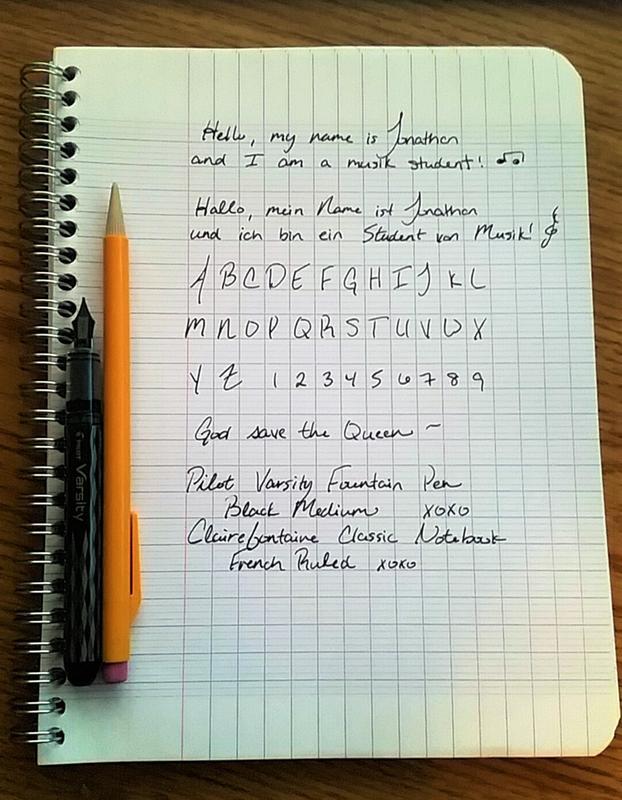 Hello, my name is Jonathon
and I am a musik student!
Hallo, mein Name ist Jonathon
und ich bin ein Student von Musik!
A B C D E F G H I J K L
M N O P Q R S T U V W X
Y Z 1 2 3 4 5 6 7 8 9
God save the Queen ~
Pilot Varsity Fountain Pen
Black Medium xoxo
Clairefontaine Classic Notebook
French Ruled xoxo
PILOT Varsity